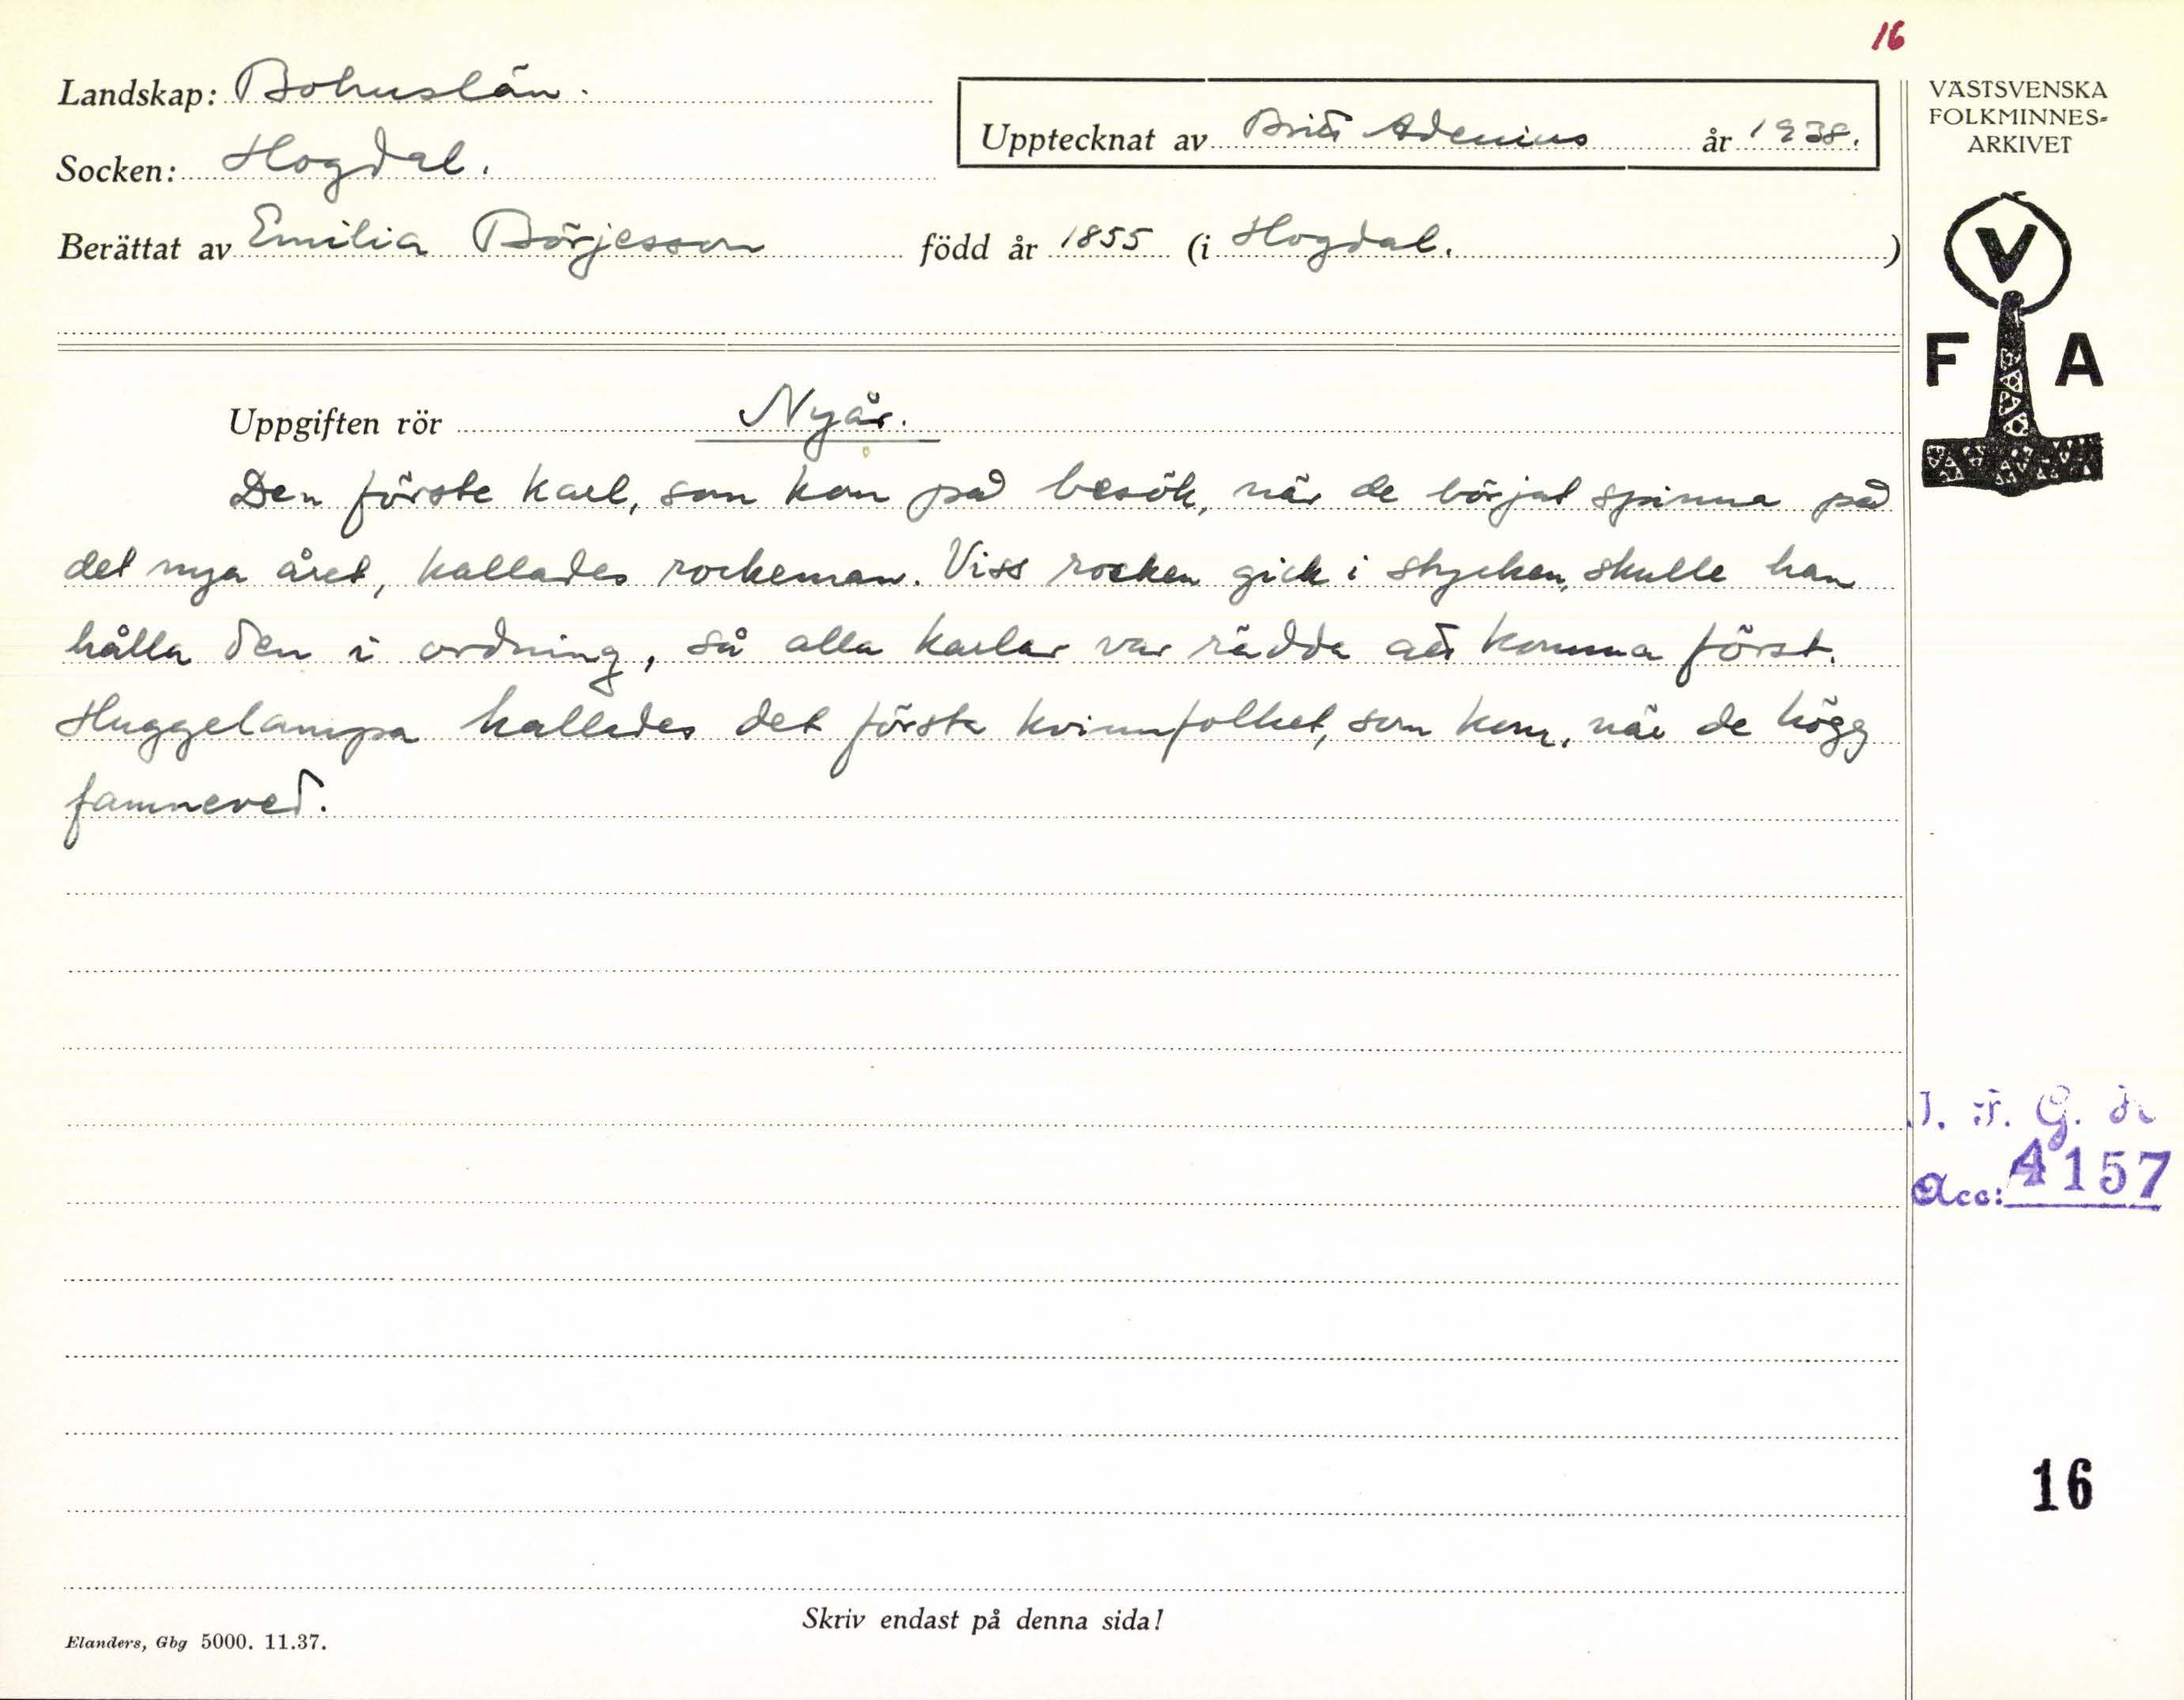 16
Landskap: Bohuslän.
Socken: Hogdal.
Upptecknat av Britt Adenius år 1938.
Berättat av Emilia Börjesson född år 1855 (i Hogdal. )
VÄSTSVENSKA
FOLKMINNES-
ARKIVET
V
F A
Uppgiften rör Nyår.
Den förste karl, som kom på besök, när de börjat spinna på
det nya året, kallades rockeman. Viss rocken gick i stycken, skulle han
hålla den i ordning, så alla karlar var rädda att komma först.
Huggelampa kallades det första kvinnfolket, som kom, när de högg
famneved.
Acc: 4157
16
Skriv endast på denna sida!
Elanders, Gbg 5000. 11.37.